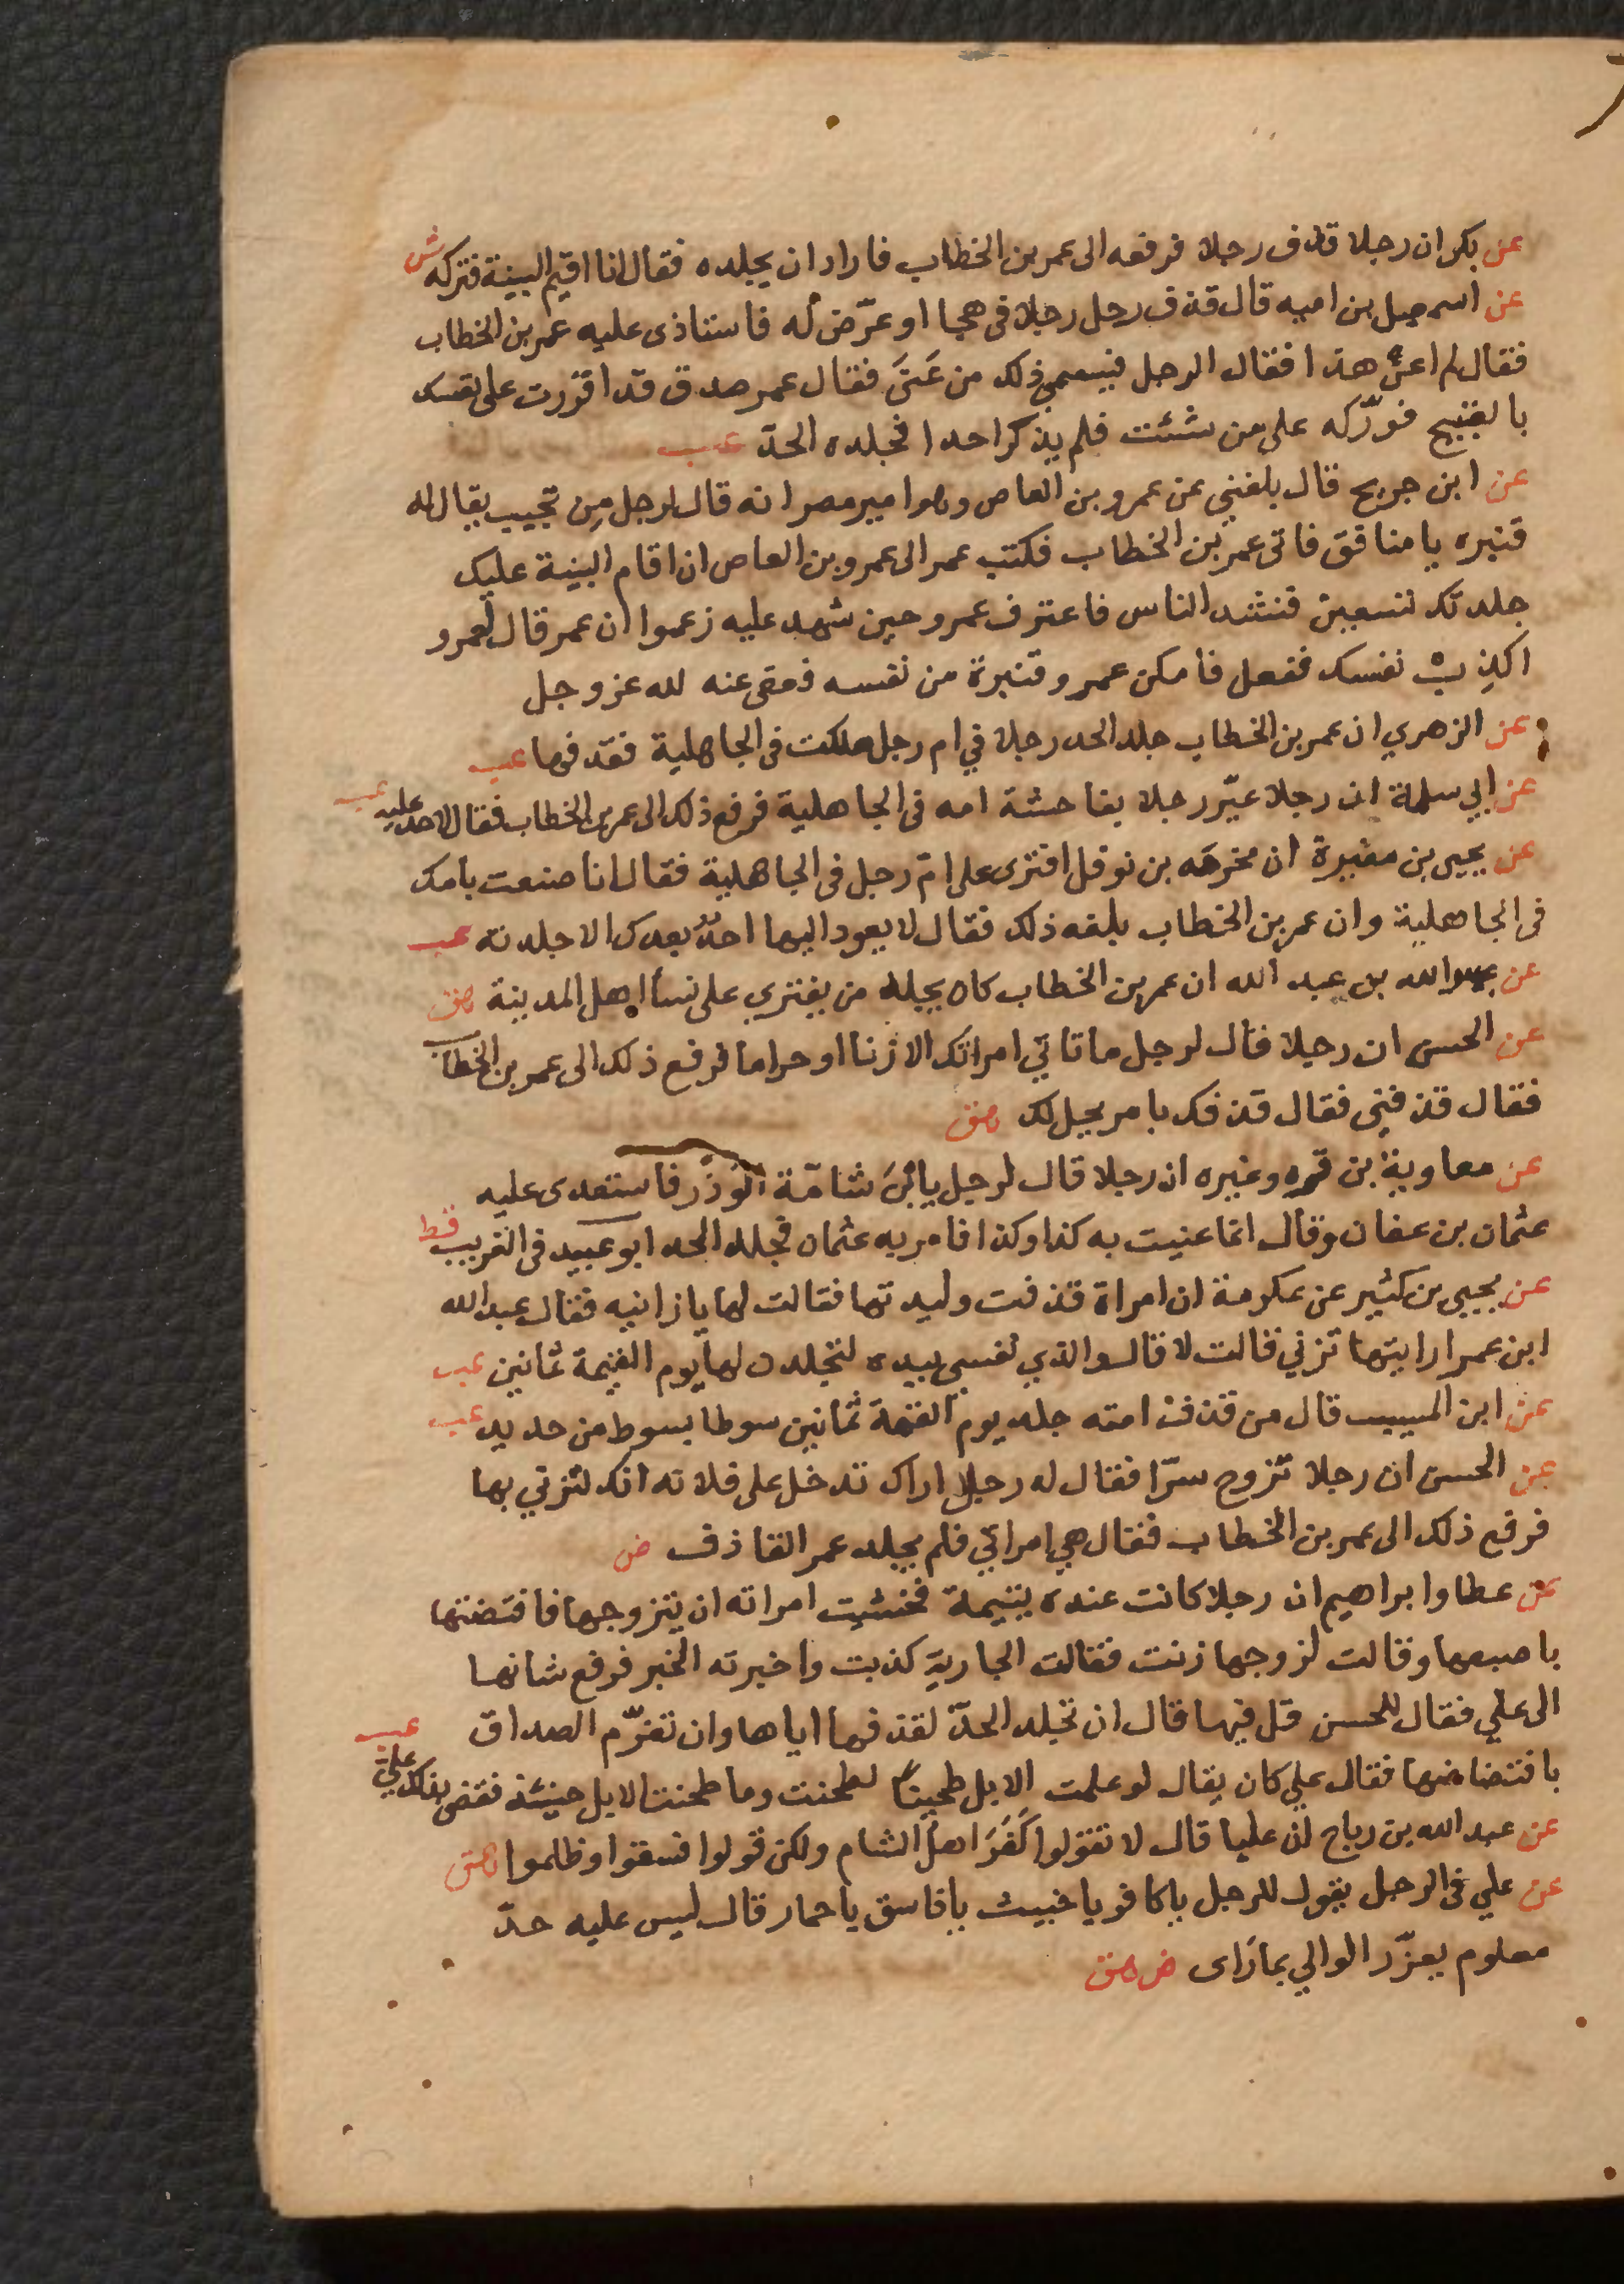 عن بكر ان رجلا قذف رجلا فرفعه الى عمر بن الخطاب فاراد ان يجلده فقال انا اقيم البينة فتركه ش
عن اسمعيل بن اميه قال قذف رجل رجلا فى هجا او عرّض له فاستاذى عليه عمر بن الخطاب
فقال لم اعن هذا فقال الرجل فيسمي ذلك من عَنَى فقال عمر صدق قد اقررت على نفسك
بالقبيح فورّكه على من شئت فلم يذكر احدا فجلده الحدّ عب
عن ابن جريج قال بلغني عن عمرو بن العاص وهو امير مصر انه قال لرجل مِن تجيب يقال له
قنبره يا منافق فاتى عمر بن الخطاب فكتب عمر الى عمرو بن العاص ان اقام البينة عليك
جلدتك تسعين فنشد الناس فاعترف عمرو حين شهد عليه زعموا ان عمر قال لعمرو
اكذب نفسك ففعل فامكن عمرو قنبرة من نفسه فعفى عنه لله عز وجل
عن الزهري ان عمر بن الخطاب جلد الحد رجلا في ام رجل هلكت فى الجاهلية فقذفها عب
عن ابي سلمة ان رجلا عيّر رجلا بفاحشة امه فى الجاهلية فرفع ذلك الى عمر بن الخطاب فقال لا حد عليه عب
عن يحيى بن مغيرة ان مخرمه بن نوفل افترى على امّ رجل فى الجاهلية فقال انا صنعت بامك
فى الجاهلية وان عمر بن الخطاب بلغه ذلك فقال لا يعود اليها احدٌ بعدك الا جلدته عب
عن عبد الله ان عمر بن الخطاب كان يجلد من يفترى على نسأ اهل المدينة هق
عن الحسن ان رجلا قال لرجل ما تاتي امراتك الا زنا او حراما فرفع ذلك الى عمر بن الخطاب
فقال قذفنى فقال قذفك بامر يحل لك هق
عن معاوية بن قره وغيره ان رجلا قال لرجل يا ابن شامّة الوَذْر فاستعدى عليه
عثمان بن عفان وقال انما عنيت به كذا وكذا فامر به عثمان فجلد الحد ابو عبيد فى الغريب قط
عن يحيى بن كثير عن عكرمة ان امراة قذفت وليدتها فقالت لها يا زانيه فقال عبد الله
ابن عمر ارايتها تزني قالت لا قال والذي نفسي بيده لتجلدن لها يوم القيمة ثمانين عب
عن ابن المسيب قال من قذف امته جلد يوم القيمة ثمانين سوطا بسوط من حديد عب
عن الحسن ان رجلا تزوج سرّا فقال له رجل اراك تدخل على فلانه انك لتزني بها
فرفع ذلك الى عمر بن الخطاب فقال هي امراتي فلم يجلد عمر القاذف ض
عن عطا وابراهيم ان رجلا كانت عنده يتيمة فخشيت امراته ان يتزوجها فافتضتها
باصبعها وقالت لزوجها زنت فقالت الجارية كذبت واخبرته الخبر فرفع شانها
الى علي فقال للحسن قل فيها قال ان تجلد الحدّ لقذفها اياها وان تغرّم الصداق
بافتضاضها فقال علي كان يقال لو علمت الابل طحينًا لطحنت وما طحنت الابل حينئذ فقضى بذلك علي عب
عن عبد الله بن رباح ان عليا قال لا تقولوا كَفَرَ اهلُ الشام ولكن قولوا فسقوا وظلموا هق
عن علي فى الرجل يقول للرجل يا كافر يا خبيث يا فاسق يا حمار قال ليس عليه حدّ
معلوم يعزّر الوالي بما رَاى ض هق